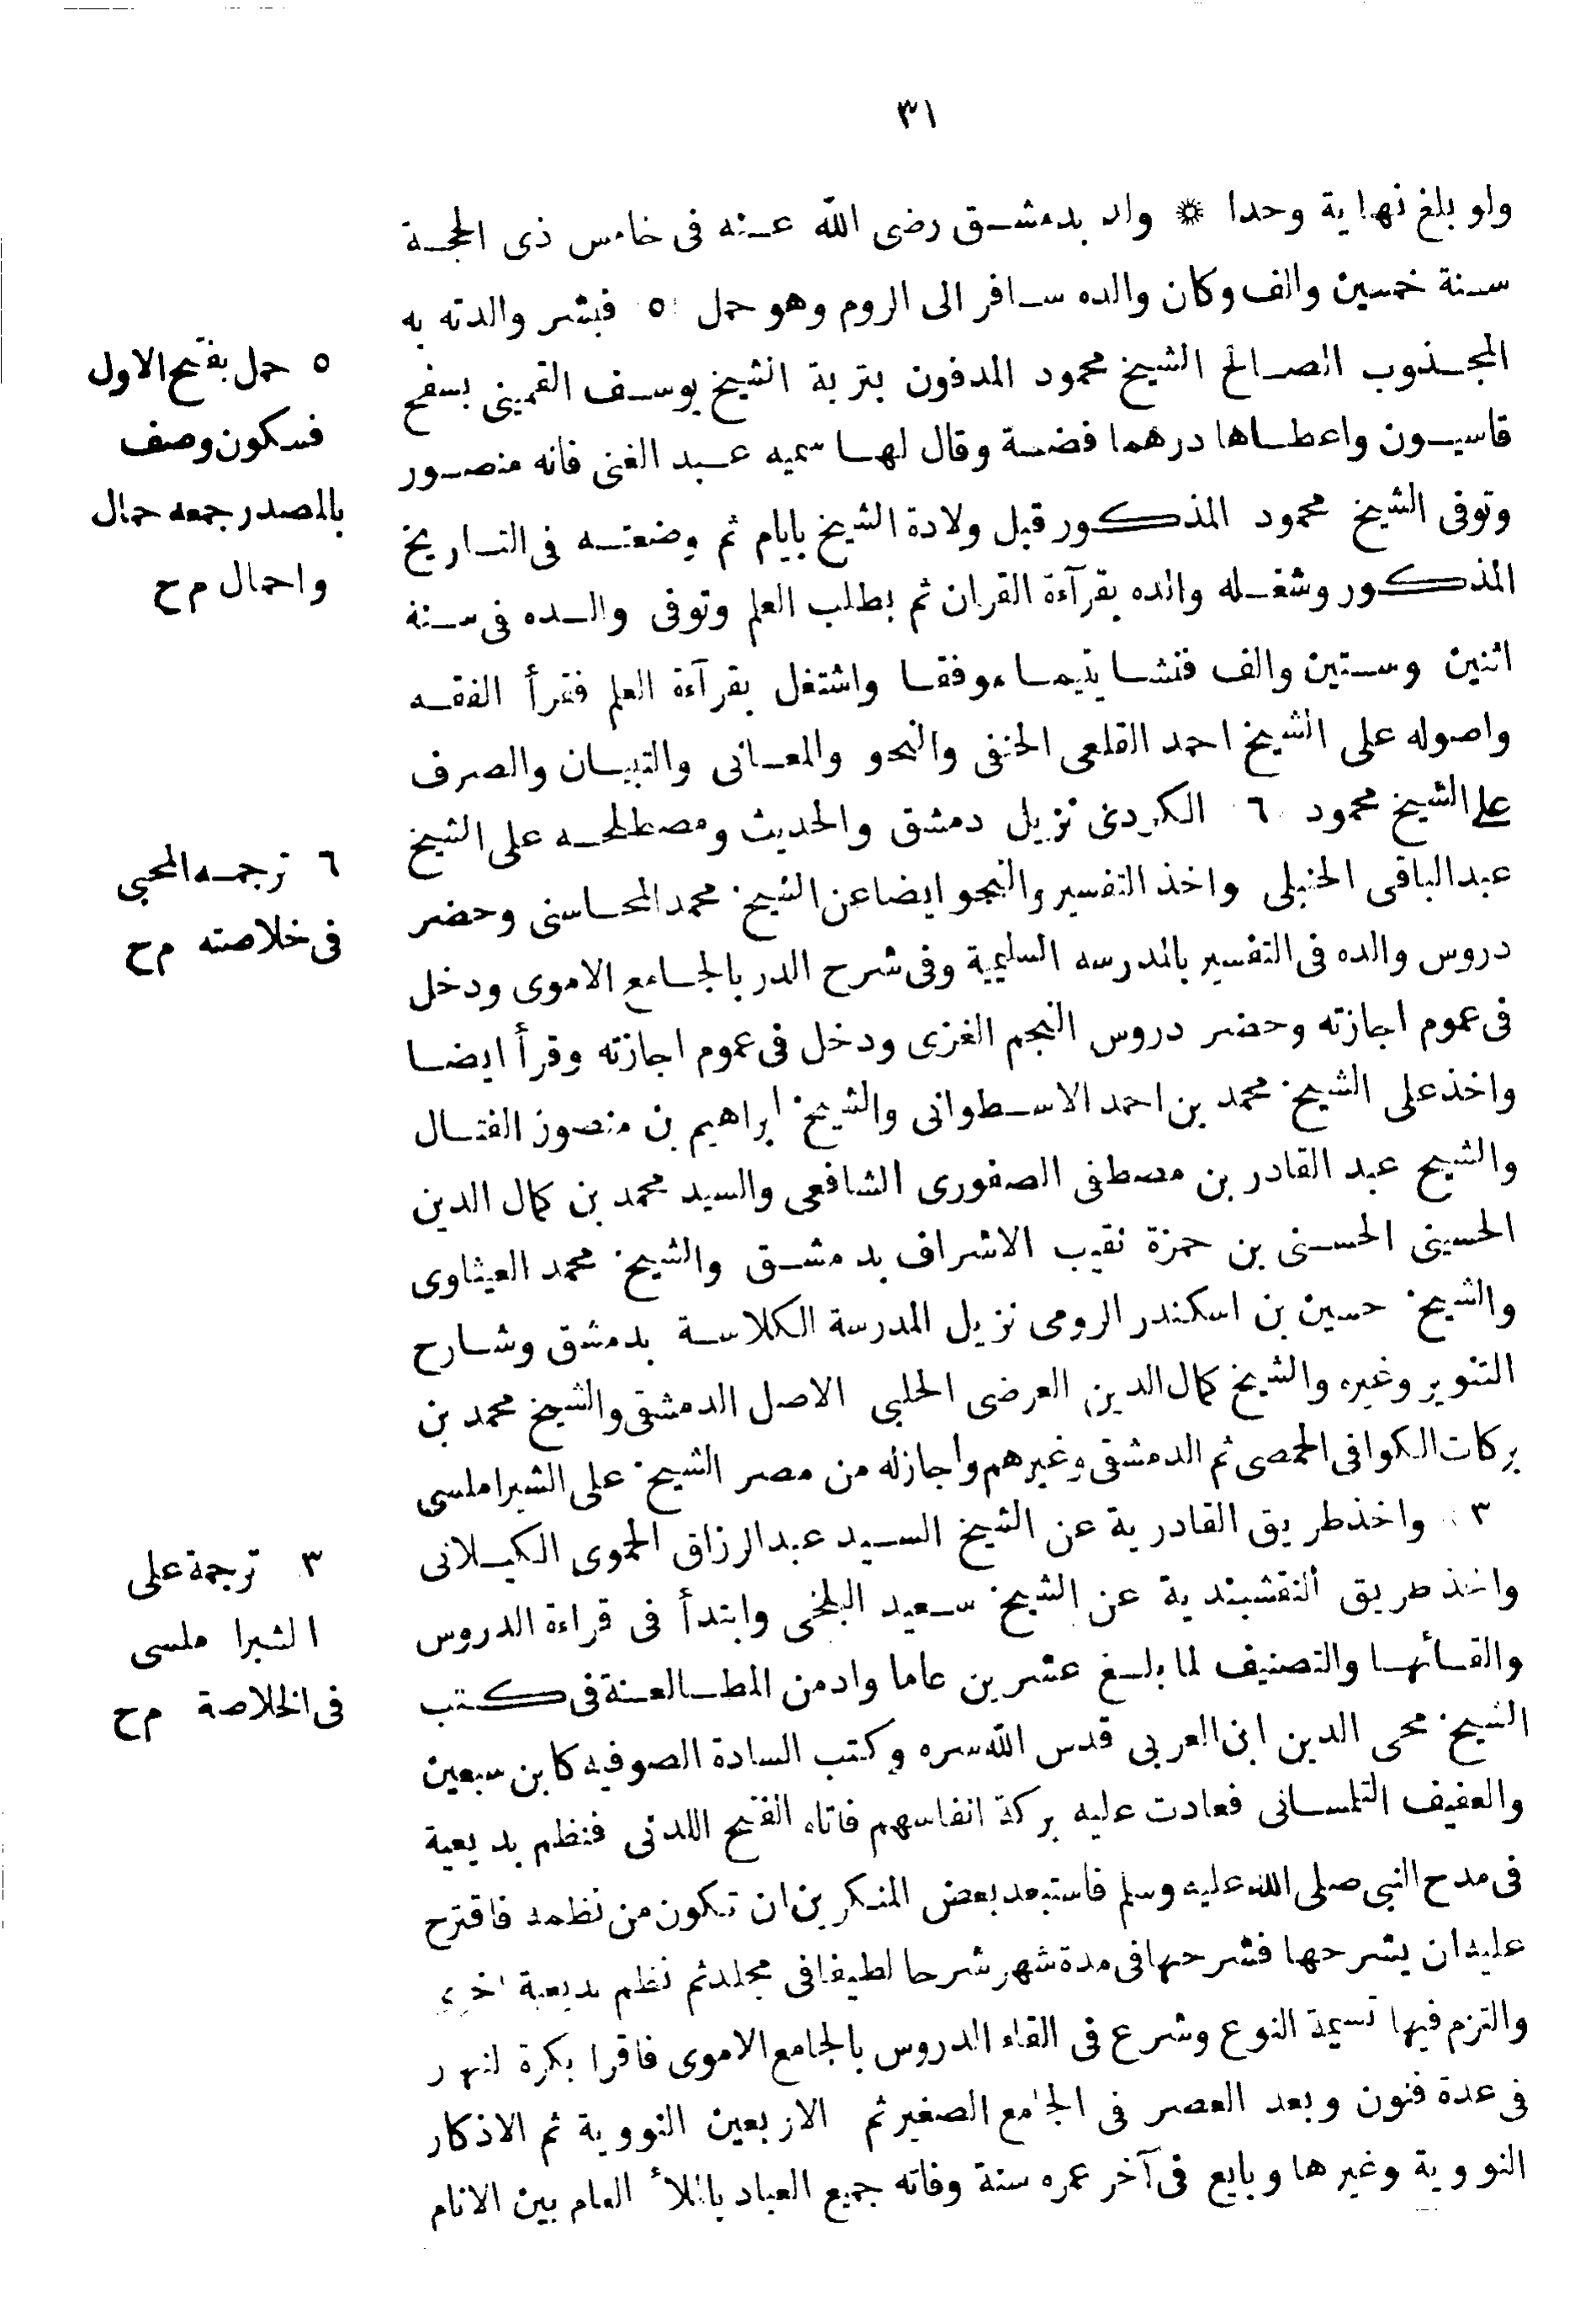 ٣١
ولو بلغ نهاية وحدا ۞ ولد بدمشق رضى الله عنه فى خامس ذى الحجة
سنة خمسين والف وكان والده سافر الى الروم وهو حمل ٥ فبشر والدته به
المجذوب الصالح الشيخ محمود المدفون بتربة الشيخ يوسف القمينى بسفح
قاسيون واعطاها درهما فضة وقال لها سميه عبد الغنى فانه منصور
وتوفى الشيخ محمود المذكور قبل ولادة الشيخ بايام ثم وضعته فى التاريخ
المذكور وشغله والده بقرآءة القران ثم بطلب العلم وتوفى والده فى سنة
اثنين وستين والف فنشا يتيما موفقا واشتغل بقرآءة العلم فقرأ الفقه
واصوله على الشيخ احمد القلعى الحنفى والنحو والمعانى والتبيان والصرف
على الشيخ محمود ٦ الكردى نزيل دمشق والحديث ومصطلحه على الشيخ
عبد الباقى الحنبلى واخذ التفسير والنحو ايضا عن الشيخ محمد المحاسنى وحضر
دروس والده فى التفسير بالمدرسه السليمية وفى شرح الدر بالجامع الاموى ودخل
فى عموم اجازته وحضر دروس النجم الغزى ودخل فى عموم اجازته وقرأ ايضا
واخذ على الشيخ محمد بن احمد الاسطوانى والشيخ ابراهيم بن منصور الفتال
والشيخ عبد القادر بن مصطفى الصفورى الشافعى والسيد محمد بن كمال الدين
الحسينى الحسنى بن حمزة نقيب الاشراف بدمشق والشيخ محمد العيثاوى
والشيخ حسين بن اسكندر الرومى نزيل المدرسة الكلاسة بدمشق وشارح
التنوير وغيره والشيخ كمال الدين العرضى الحلبى الاصل الدمشقى والشيخ محمد بن
بركات الكوافى الحمصى ثم الدمشقى وغيرهم واجازله من مصر الشيخ على الشبراملسى
٣ واخذ طريق القادرية عن الشيخ السيد عبد الرزاق الحموى الكيلانى
واخذ طريق النقشبندية عن الشيخ سعيد البلخى وابتدأ فى قراءة الدروس
والقائها والتصنيف لما بلغ عشرين عاما وادمن المطالعة فى كتب
الشيخ محى الدين ابن العربى قدس الله سره وكتب السادة الصوفيه كابن سبعين
والعفيف التلمسانى فعادت عليه بركة انفاسهم فاتاه الفتح اللدنى فنظم بديعية
فى مدح النبى صلى الله عليه وسلم فاستبعد بعض المنكرين ان تكون من نظمه فاقترح
عليه ان يشرحها فشرحها فى مدة شهر شرحا لطيفا فى مجلد ثم نظم بديعية اخرى
والتزم فيها تسمية النوع وشرع فى القاء الدروس بالجامع الاموى فاقرا بكرة النهار
فى عدة فنون وبعد العصر فى الجامع الصغير ثم الاربعين النووية ثم الاذكار
النووية وغيرها وبايع فى آخر عمره سنة وفاته جميع العباد بالملأ العام بين الانام
٥ حمل بفتح الاول
فسكون وصف
بالمصدر جمعه حمال
واحمال م ح
٦ ترجمه المحبى
فى خلاصته م ح
٣ ترجمة على
الشبراملسى
فى الخلاصة م ح